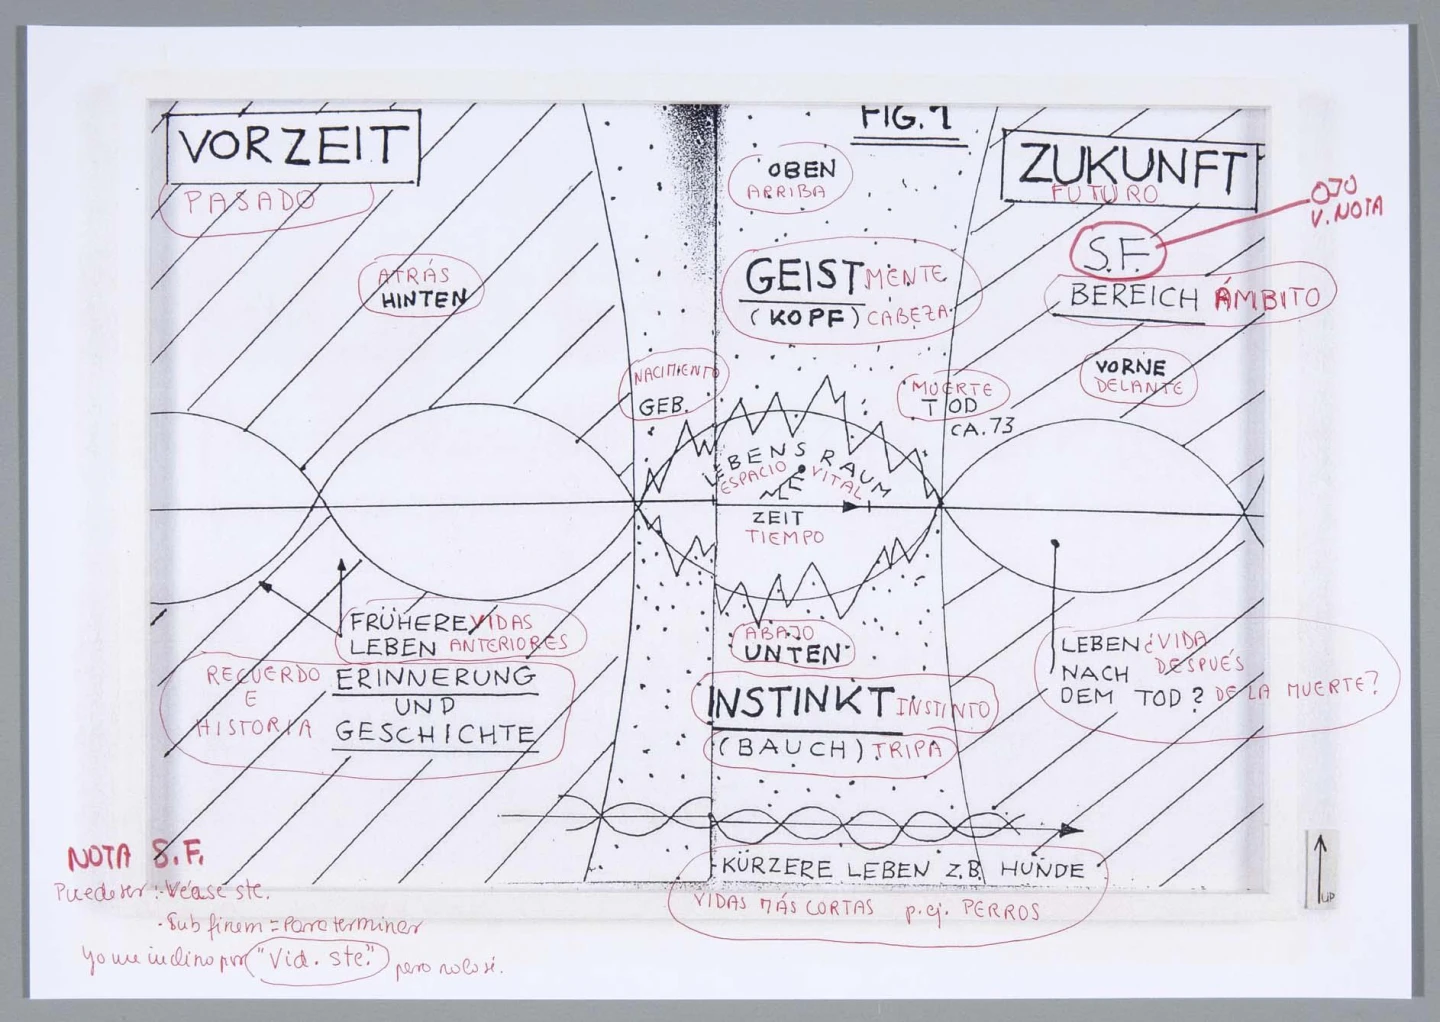 VORZEIT
PASADO
FIG. 1
OBEN
ARRIBA
ZUKUNFT
FUTURO
OJO
V. NOTA
S.F.
BEREICH ÁMBITO
ATRÁS
HINTEN
GEIST MENTE
(KOPF) CABEZA
VORNE
DELANTE
NACIMIENTO
GEB.
MUERTE
TOD
CA. 73
LEBENSRAUM
ESPACIO VITAL
ZEIT
TIEMPO
FRÜHERE VIDAS
LEBEN ANTERIORES
RECUERDO
E
HISTORIA
ERINNERUNG
UND
GESCHICHTE
ABAJO
UNTEN
INSTINKT INSTINTO
(BAUCH) TRIPA
LEBEN ¿VIDA
NACH DESPUÉS
DEM TOD? DE LA MUERTE?
KÜRZERE LEBEN Z.B. HUNDE
VIDAS MÁS CORTAS p.ej. PERROS
UP
NOTA S.F.
Puede ser: Véase ste.
- Sub finem = Para terminar
Yo me inclino por "Vid. ste." pero no lo sé.